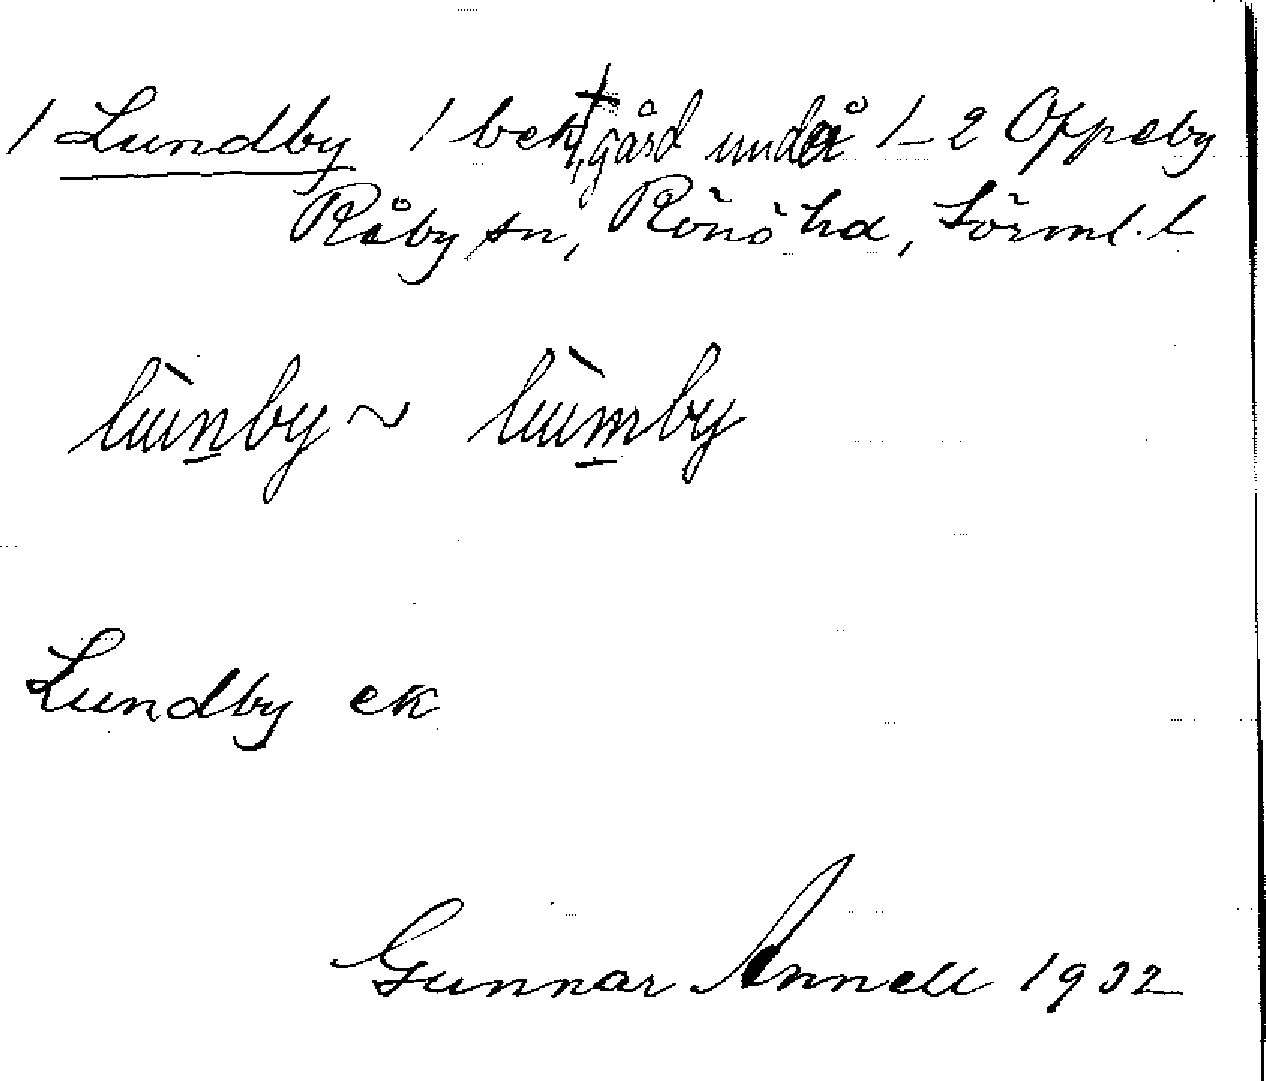 1 Lundby 1 bek, gård undå 1-2 Oppeby
Råby sn, Rönö hd, Sörml. l
lùnby ~ lùmby
Lundby ek
Gunnar Annell 1932